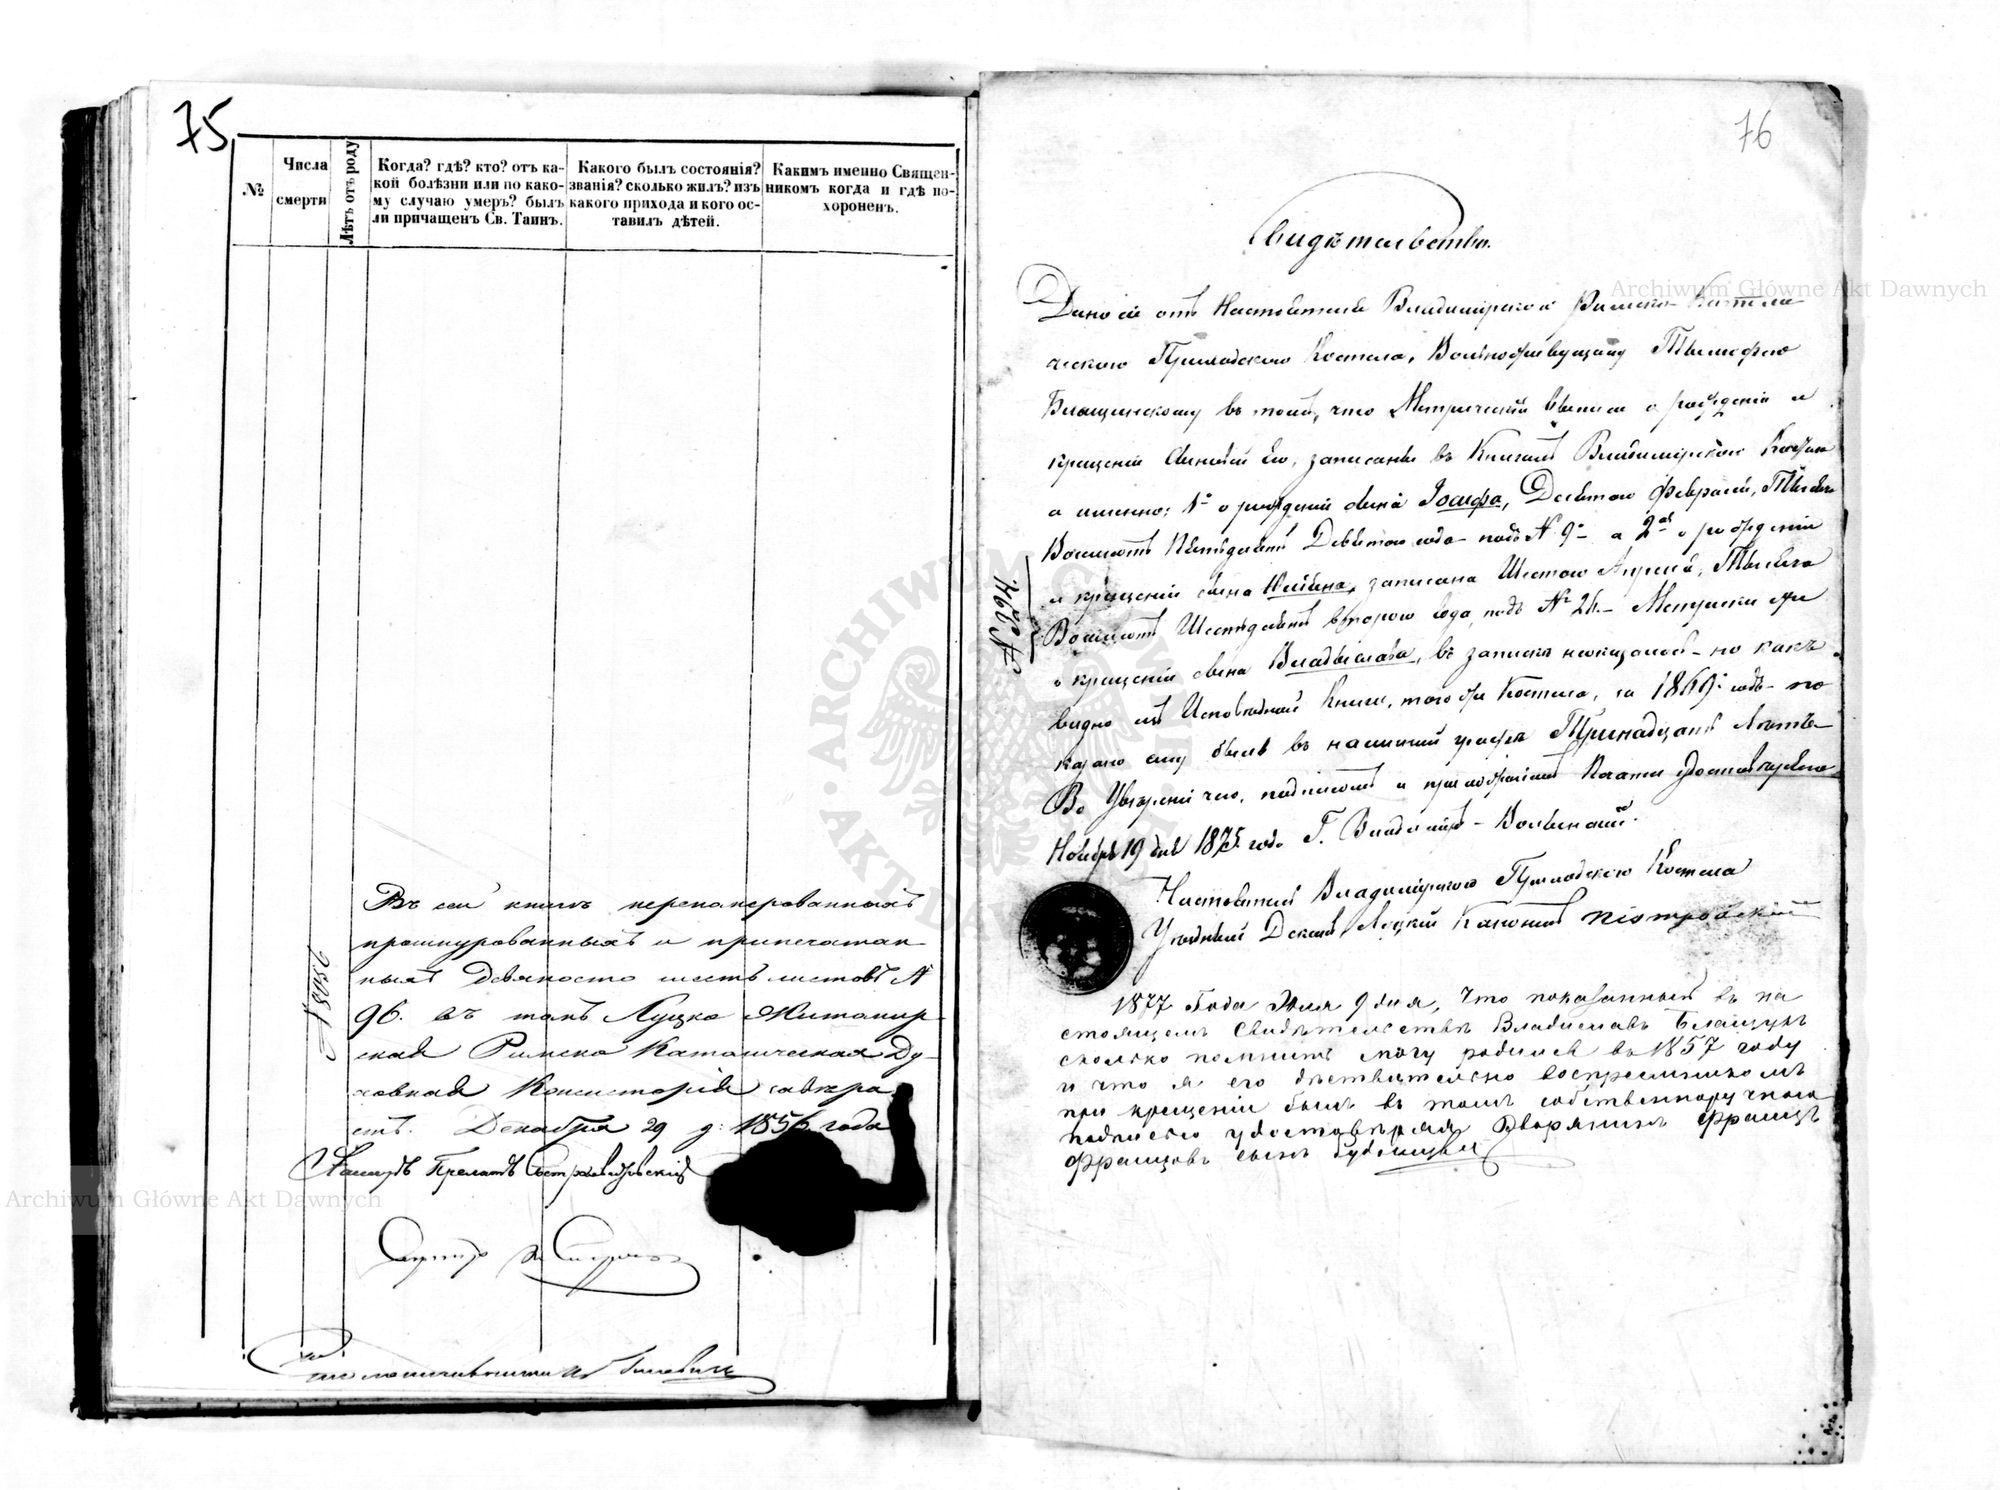 75
№
Числа смерти
Лѣтъ отъ роду
Когда? гдѣ? кто? отъ ка-
кой болѣзни или по како-
му случаю умеръ? былъ
ли причащенъ Св. Таинъ.
Какого былъ состоянія?
званія? сколько жилъ? изъ
какого прихода и кого ос-
тавилъ дѣтей.
Какимъ именно Священ-
никомъ когда и гдѣ по-
хороненъ.
Въ сей книгѣ перенумерованныхъ
прошнурованныхъ и припечатан-
ныхъ девяносто шесть листовъ №
96. въ томъ Луцко Житомир-
ская Римско Католическая Ду-
ховная Консисторія завѣря
етъ. Декабря 29 д: 1856 года
Прелатъ
76
Свидѣтельство.
Дано сіе отъ Настоятеля Владимірскаго Римско-Католи
ческаго Приходскаго Костела, Вольноживущему Тимофею
Блащинскому въ томъ, что Метрическія выписи о рожденіи и
крещеніи сыновей Его, записаны въ Книгахъ Владимірскаго Костела
а именно: 1е о рожденіи сына Іосифа, Девятаго Февраля, Тысяча
Восемсотъ Пятьдесятъ Девятаго года подъ № 9 а 2ая о рожденіи
и крещеніи сына записана Шестаго Апрѣля, Тысяча
Восемсотъ Шестьдесятъ втораго года, подъ № 26. Метрики же
о крещеніи сына Владыслава, въ запискѣ неоказалось - но какъ
видно изъ Исповѣдной Книги, того же Костела, за 1869 годъ - по
казано ему былъ въ графѣ Тринадцать Лѣтъ
Въ Увѣреніи чего, подписомъ и приложеніемъ Печати удостовѣряю
Ноября 19 дня 1875 года Г. Владиміръ-Волынскій.
Настоятель Владимірскаго Приходскаго Костела
Уѣздный Деканъ, Луцкій Каноникъ Піотровскій
1877 Года Іюля 9 дня, Что показанный въ на
стоящемъ Свидѣтельствѣ Владиславъ Блащукъ
сколько помнить могу родился въ 1857 году
и что я его дѣствительно воспреемникомъ
при крещеніи былъ въ томъ собственноручного
подписью удостовѣряю Дворянинъ Францъ
Францовъ сынъ
Archiwum Główne Akt Dawnych
Archiwum Główne Akt Dawnych